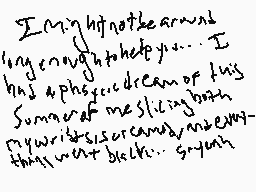 I might not be around
long enough to help you... I
had a phsycic dream of this
Summer of me slicing both
my wrists, screamed, and every-
thing went black... so yeah